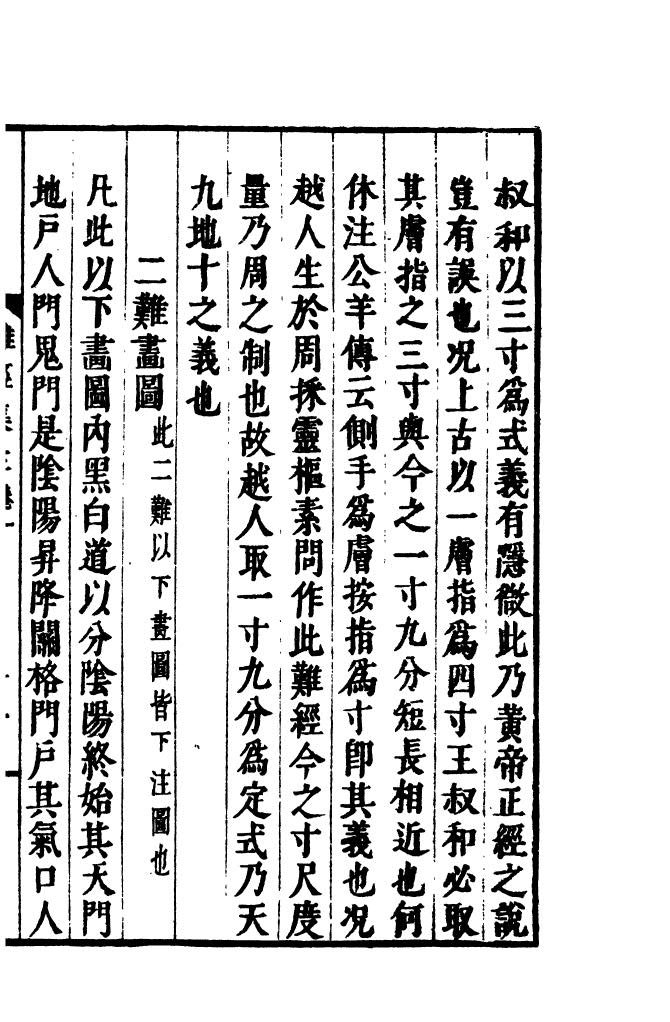 叔和以三寸爲式義有隱微此乃黃帝正經之說
豈有誤也况上古以一膚指爲四寸王叔和必取
其膚指之三寸與今之一寸九分短長相近也何
休注公羊傳云側手爲膚按指爲寸卽其義也况
越人生於周採靈樞素問作此難經今之寸尺度
量乃周之制也故越人取一寸九分爲定式乃天
九地十之義也
二難畫圖此二難以下畫圖皆下注圖也
凡此以下畫圖內黑白道以分陰陽終始其天門
地戶人門鬼門是陰陽昇降關格門戶其氣口人